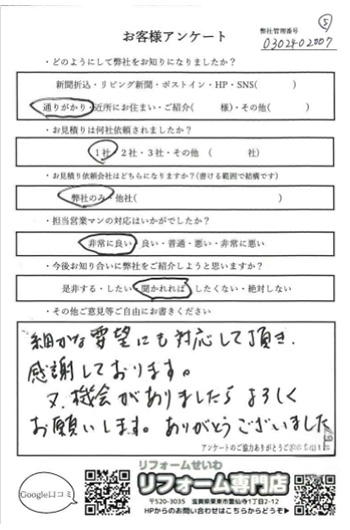 ⑤
お客様アンケート
弊社管理番号
030240200７
・どのようにして弊社をお知りになりましたか？
新聞折込・リビング新聞・ポストイン・HP・SNS(　　　)
通りがかり・近所にお住まい・ご紹介(　　　様)・その他(　　　)
・お見積りは何社依頼されましたか？
1社・2社・3社・その他　(　　　社)
・お見積り依頼会社はどちらになりますか？(書ける範囲で結構です)
弊社のみ・他社(　　　)
・担当営業マンの対応はいかがでしたか？
非常に良い・良い・普通・悪い・非常に悪い
・今後お知り合いに弊社をご紹介しようと思いますか？
是非する・したい・聞かれれば・したくない・絶対しない
・その他ご意見等ご自由にお書きください
細かな要望にも対応して頂き、
感謝しております。
又、機会がありましたら よろしく
お願いします。ありがとうございました
アンケートのご協力ありがとうございました
Google口コミ
リフォームせいわ
リフォーム専門店
〒520-3035　滋賀県栗東市霊仙寺1丁目2-12
HPからのお問い合わせはこちらからどうぞ▶